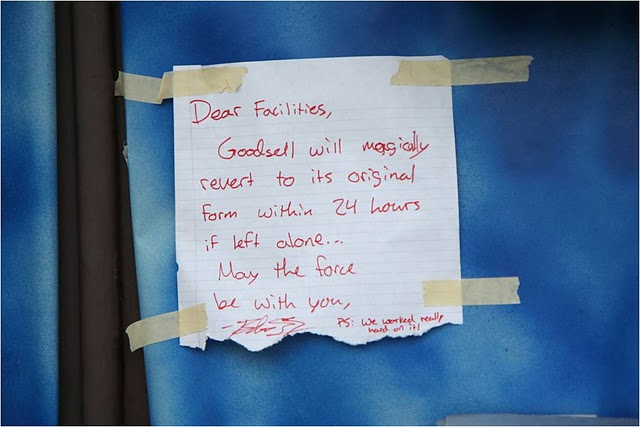 Dear Facilities,
Goodsell will magically
revert to its original
form within 24 hours
if left alone...
May the force
be with you,
PS: We worked really
hard on it!